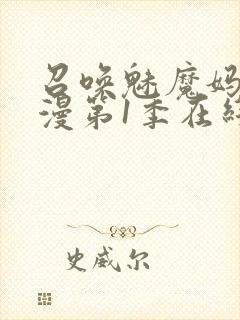 召唤魅魔妈
漫第1季在线
史威尔